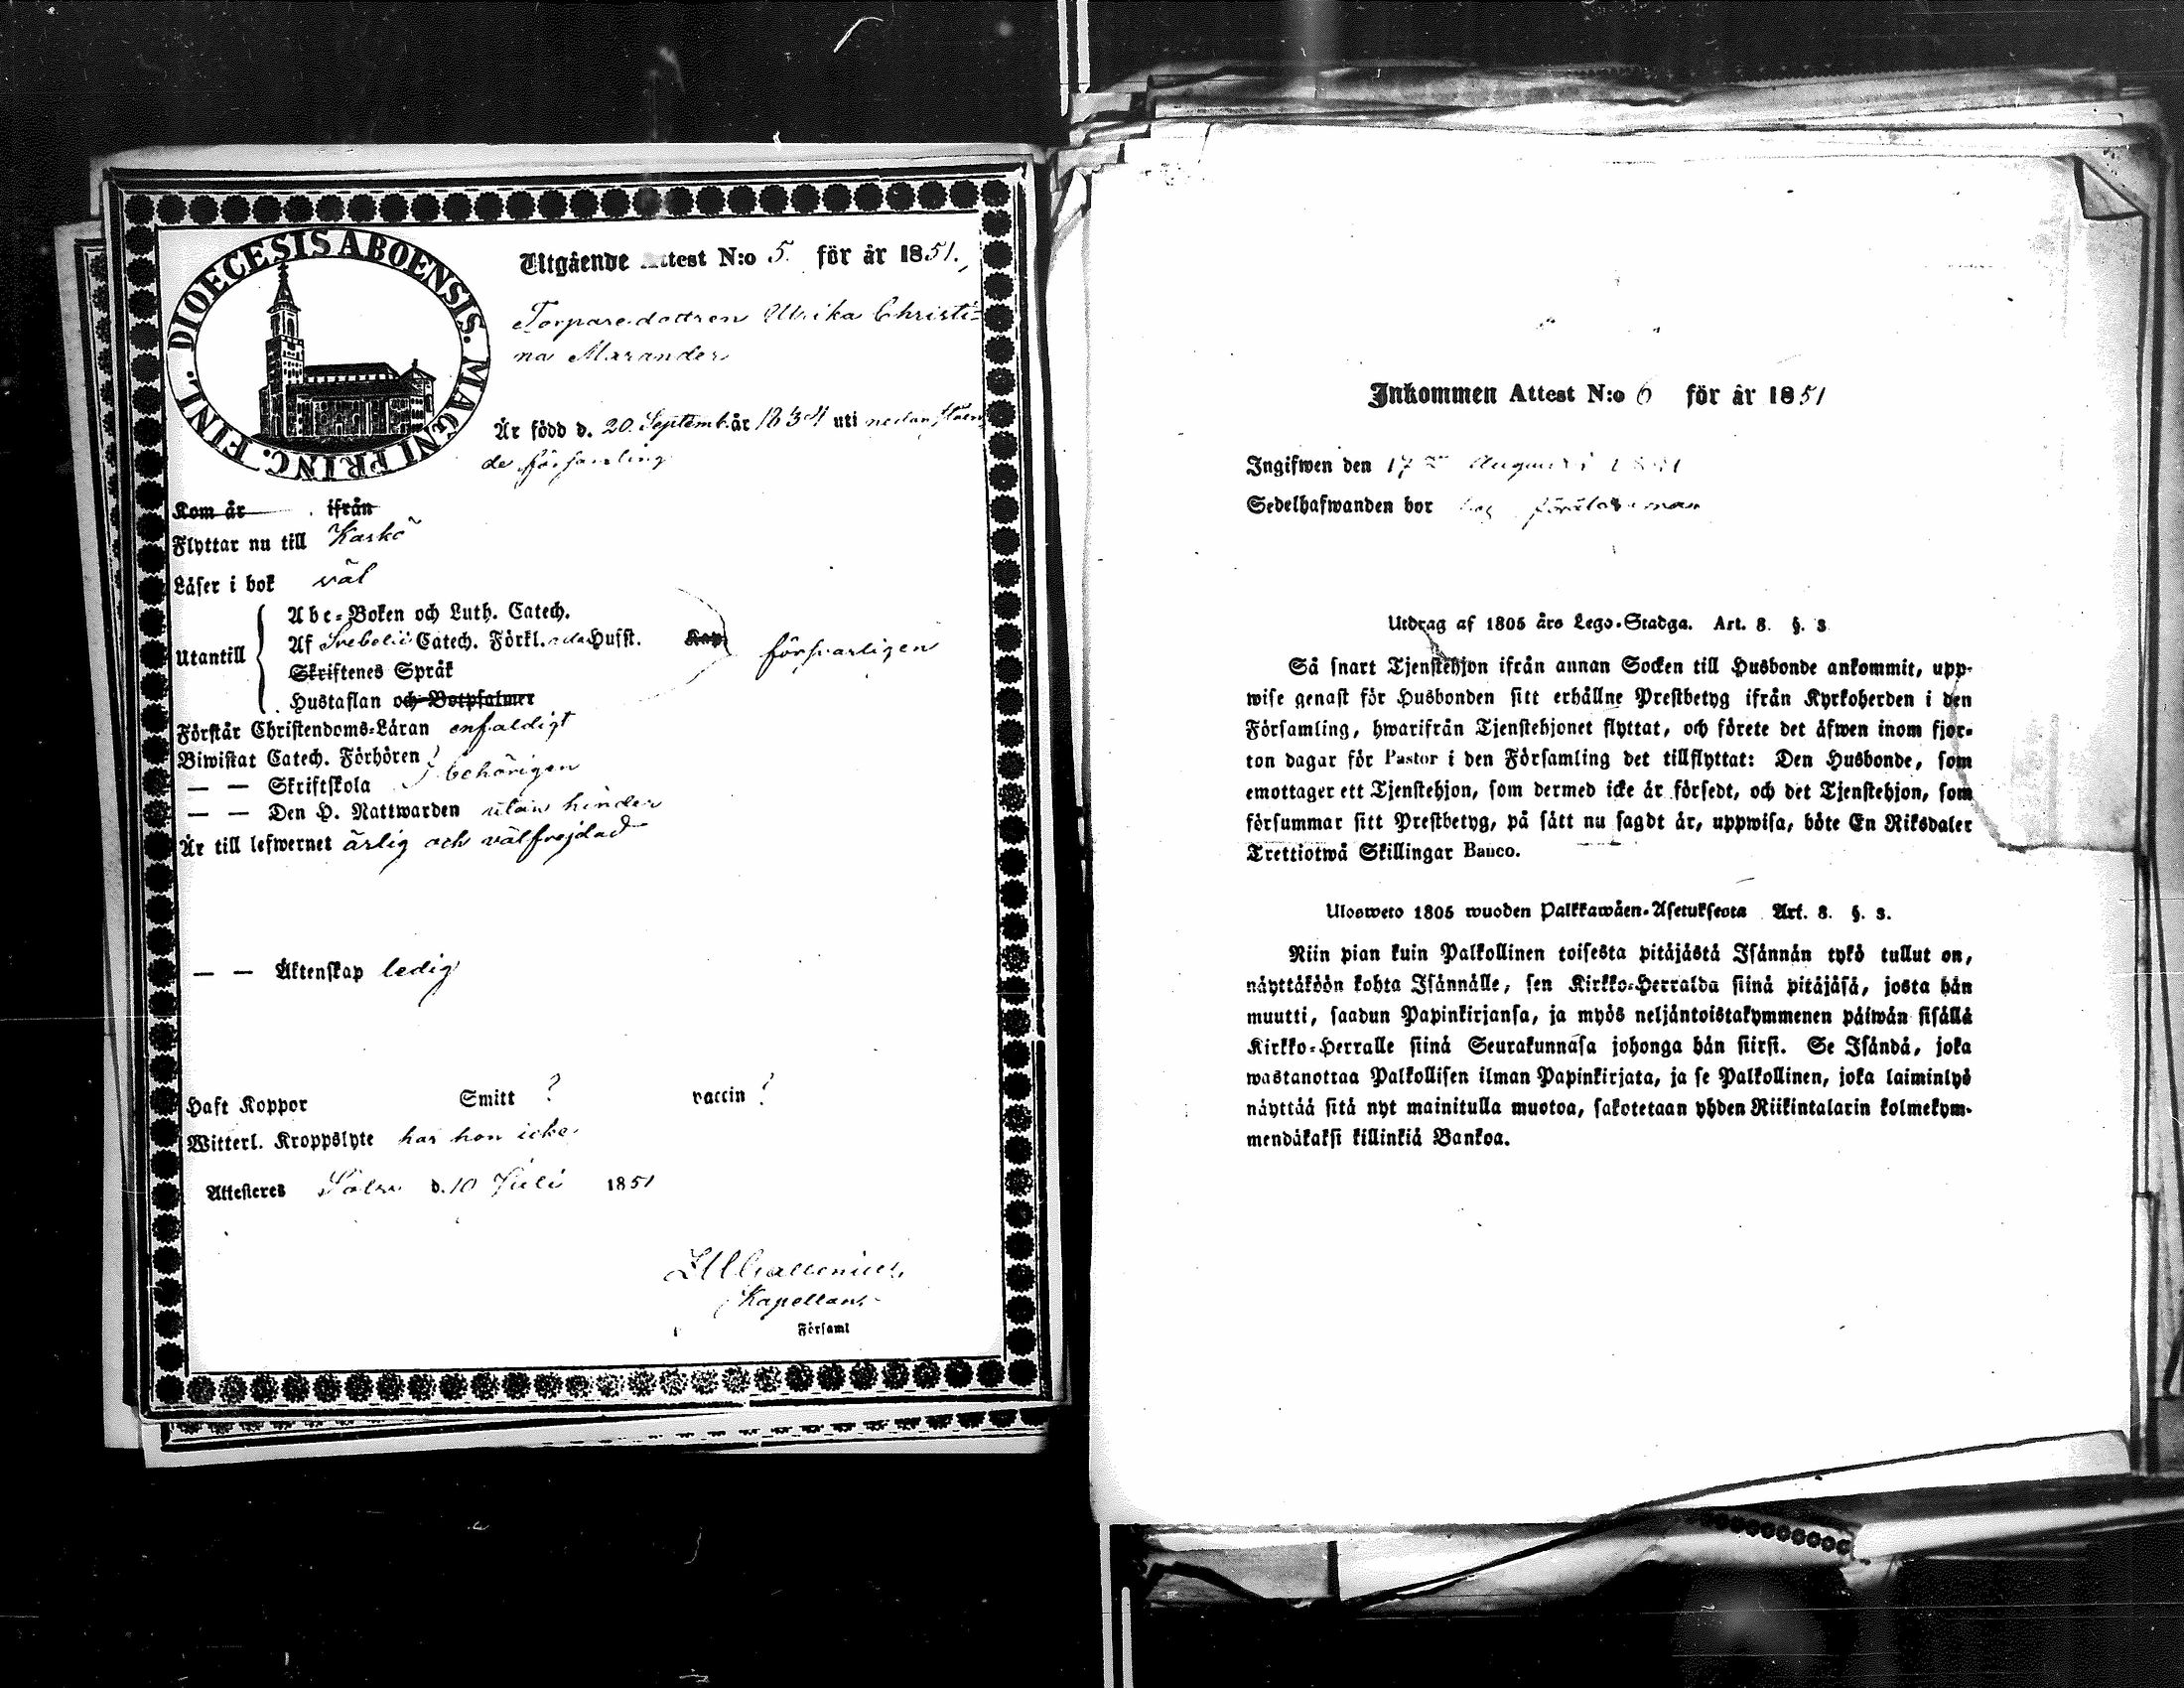 DIOECESIS ABOENSIS. MAGNI PRINC. FINL.
Utgående Attest N:o 5. för år 1851.
Torparedottren Ulrika Christi-
na Marander
Är född d. 20 Septemb. år 1834 uti nedanståen
de församling
Kom år ifrån
Flyttar nu till Kaskö
Läser i bok väl
Utantill
Abc-Boken och Luth. Catech.
Af Svebelii Catech. Förkl. Husst. Kap
Skriftenes Språk
Hustaflan och Botpsalmer
försvarligen
Förstår Christendoms-Läran enfaldigt
Biwistat Catech. Förhören
— — Skriftskola
behörigen
— — Den H. Nattwarden utan hinder
Är till lefwernet ärlig och välfrejdad
— — Äktenskap ledig
Haft Koppor Smitt ? vaccin ?
Witterl. Kroppslyte har hon icke
Attesteres d. 10 Juli 1851
Kapellan
Församl
Inkommen Attest N:o 6 för år 1851
Ingifwen den 17 Augusti 1851
Sedelhafwanden bor
Utdrag af 1805 års Lego-Stadga. Art. 8. §. 3
Så snart Tjenstehjon ifrån annan Socken till Husbonde ankommit, upp-
wise genast för Husbonden sitt erhållne Prestbetyg ifrån Kyrkoherden i den
Församling, hwarifrån Tjenstehjonet flyttat, och förete det äfwen inom fjor-
ton dagar för Pastor i den Församling det tillflyttat: Den Husbonde, som
emottager ett Tjenstehjon, som dermed icke är försedt, och det Tjenstehjon, som
försummar sitt Prestbetyg, på sätt nu sagdt är, uppwisa, böte En Riksdaler
Trettiotwå Skillingar Banco.
Ulosweto 1805 wuoden Palkkawäen-Asetuksesta Art. 8. §. 3.
Niin pian kuin Palkollinen toisesta pitäjästä Isännän tykö tullut on,
näyttäköön kohta Isännälle, sen Kirkko-Herralda siinä pitäjäsä, josta hän
muutti, saadun Papinkirjansa, ja myös neljäntoistakymmenen päiwän sisällä
Kirkko-Herralle siinä Seurakunnasa johonga hän siirsi. Se Isändä, joka
wastanottaa Palkollisen ilman Papinkirjata, ja se Palkollinen, joka laiminlyö
näyttää sitä nyt mainitulla muotoa, sakotetaan yhden Riikintalarin kolmekym-
mendäkaksi killinkiä Bankoa.